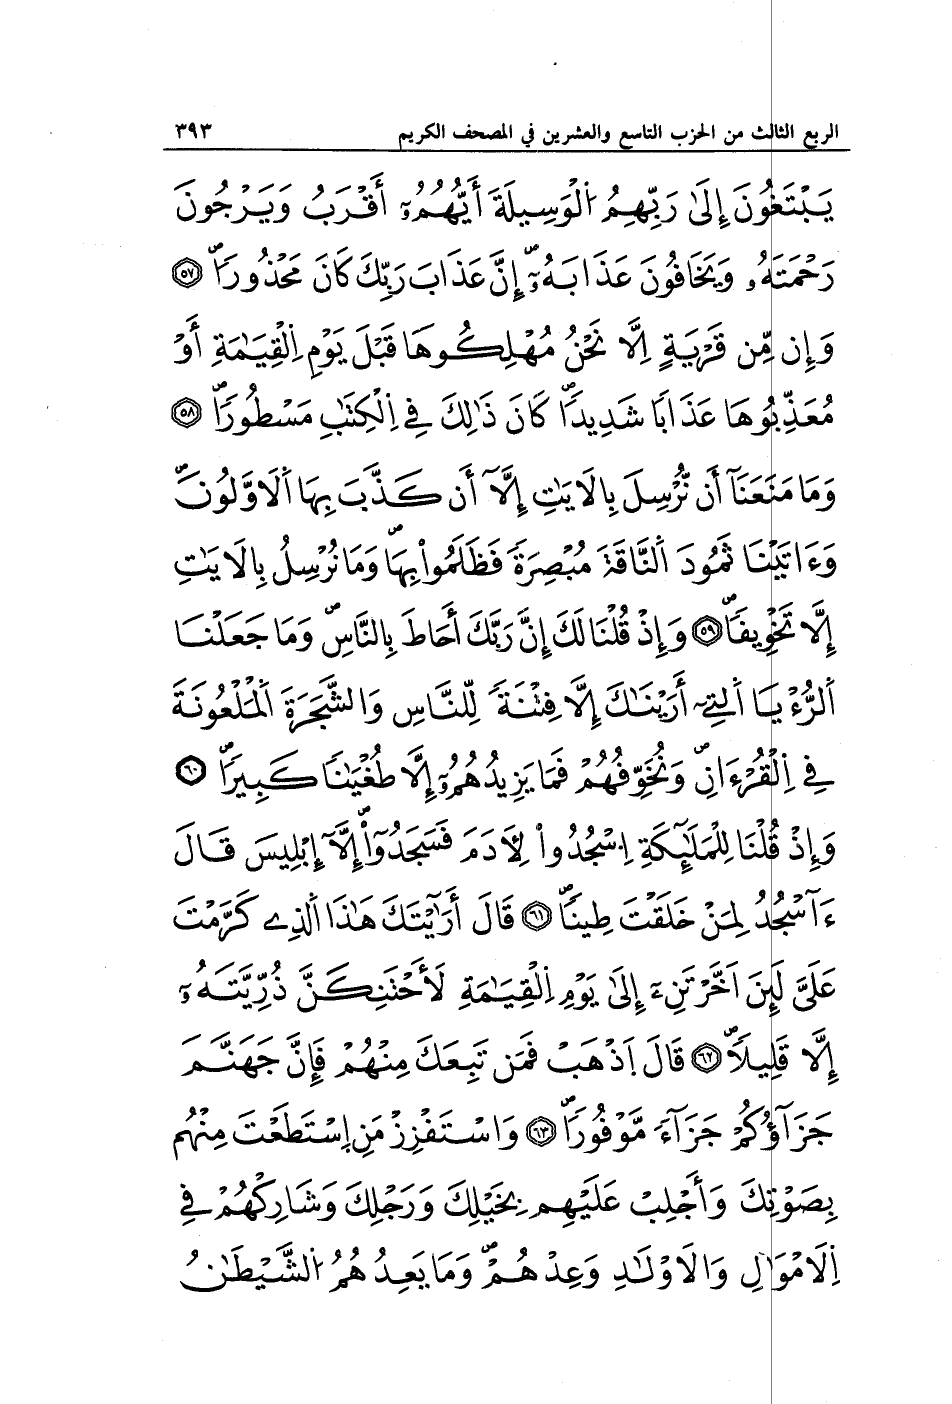 الربع الثالث من الحزب التاسع والعشرين في المصحف الكريم ٣٩٣
يَبْتَغُونَ إِلَىٰ رَبِّهِمُ اُلْوَسِيلَةَ أَيُّهُمُۥٓ أَقْرَبُ وَيَرْجُونَ
رَحْمَتَهُۥ وَيَخَافُونَ عَذَابَهُۥٓۖ إِنَّ عَذَابَ رَبِّكَ كَانَ مَحْذُوراٗۖ ٥٧
وَإِن مِّن قَرْيَةٍ إِلَّا نَحْنُ مُهْلِكُوهَا قَبْلَ يَوْمِ اِلْقِيَٰمَةِ أَوْ
مُعَذِّبُوهَا عَذَاباٗ شَدِيداٗۖ كَانَ ذَٰلِكَ فِے اِلْكِتَٰبِ مَسْطُوراٗۖ ٥٨
وَمَا مَنَعَنَآ أَن نُّرْسِلَ بِالَايَٰتِ إِلَّآ أَن كَذَّبَ بِهَا اَلَاوَّلُونَۖ
وَءَاتَيْنَا ثَمُودَ اَلنَّاقَةَ مُبْصِرَةٗ فَظَلَمُواْ بِهَاۖ وَمَا نُرْسِلُ بِالَايَٰتِ
إِلَّا تَخْوِيفاٗۖ ٥٩ وَإِذْ قُلْنَا لَكَ إِنَّ رَبَّكَ أَحَاطَ بِالنَّاسِۖ وَمَا جَعَلْنَا
اَلرُّءْيَا اَلتِےٓ أَرَيْنَٰكَ إِلَّا فِتْنَةٗ لِّلنَّاسِ وَالشَّجَرَةَ اَلْمَلْعُونَةَ
فِے اِلْقُرْءَانِۖ وَنُخَوِّفُهُمْ فَمَا يَزِيدُهُمُۥٓ إِلَّا طُغْيَٰناٗ كَبِيراٗۖ ٦٠
وَإِذْ قُلْنَا لِلْمَلَٰٓئِكَةِ اِ۟سْجُدُواْ لِأٓدَمَ فَسَجَدُوٓاْۖ إِلَّآ إِبْلِيسَ قَالَ
ءَآسْجُدُ لِمَنْ خَلَقْتَ طِيناٗۖ ٦١ قَالَ أَرَٰٓيْتَكَ هَٰذَا اَلذِے كَرَّمْتَ
عَلَىَّ لَئِنَ اَخَّرْتَنِۦٓ إِلَىٰ يَوْمِ اِلْقِيَٰمَةِ لَأَحْتَنِكَنَّ ذُرِّيَّتَهُۥٓ
إِلَّا قَلِيلاٗۖ ٦٢ قَالَ اَذْهَبْ فَمَن تَبِعَكَ مِنْهُمْ فَإِنَّ جَهَنَّمَ
جَزَآؤُكُمْ جَزَآءٗ مَّوْفُوراٗۖ ٦٣ وَاسْتَفْزِزْ مَنِ اِسْتَطَعْتَ مِنْهُم
بِصَوْتِكَ وَأَجْلِبْ عَلَيْهِم بِخَيْلِكَ وَرَجْلِكَ وَشَارِكْهُمْ فِے
اِلَامْوَٰلِ وَالَاوْلَٰدِ وَعِدْهُمْۖ وَمَا يَعِدُهُمُ اُلشَّيْطَٰنُ